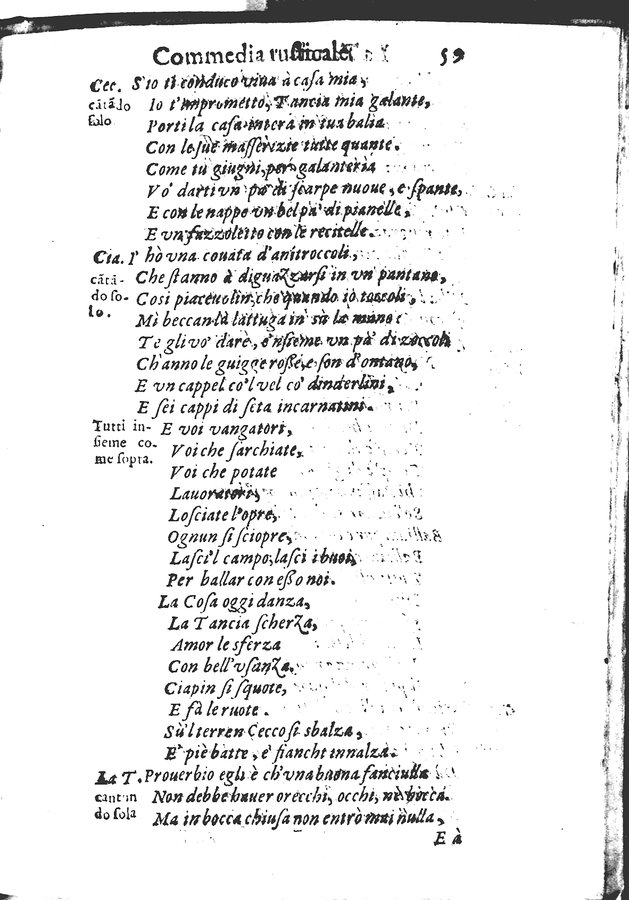 Commedia rusticale. 59
Cec. S'io ti conduco viua à casa mia,
cātādo Io t'imprometto, Tancia mia galante,
solo Porti la casa intera in tua balìa
Con le sue masserizie tutte quante.
Come tu giugni, per galanteria
Vo' darti vn pa' di scarpe nuoue, e spante,
E con le nappe vn bel pa' di pianelle,
E vn fazzoletto con le recitelle.
Cia. I' hò vna couata d'anitroccoli,
cātā- Che stanno à diguazzarsi in vn pantano,
do so- Cosi piaceuolin, che quando iò toccoli,
lo. Mi beccan là lattuga in sù la mano:
Te gli vo' dare, e'nsieme vn pa' di zoccoli
Ch'anno le guigge rosse, e son d'ontano,
E vn cappel co'l vel co' dinderlini,
E sei cappi di seta incarnatini.
Tutti in- E voi vangatori,
sieme co- Voi che sarchiate,
me sopra. Voi che potate
Lauoratori,
Losciate l'opre,
Ognun si sciopre,
Lasci'l campo, lasci i buoi,
Per ballar con esso noi.
La Cosa oggi danza,
La Tancia scherza,
Amor le sferza
Con bell'vsanza.
Ciapin si squote,
E fà le ruote.
Sù'l terren Cecco si sbalza,
E' piè batte, e' fianchi innalza.
La T. Prouerbio egli è ch'vna buona fanciulla
cantan Non debbe hauer orecchi, occhi, nè bocca.
do sola Ma in bocca chiusa non entrò mai nulla,
E à